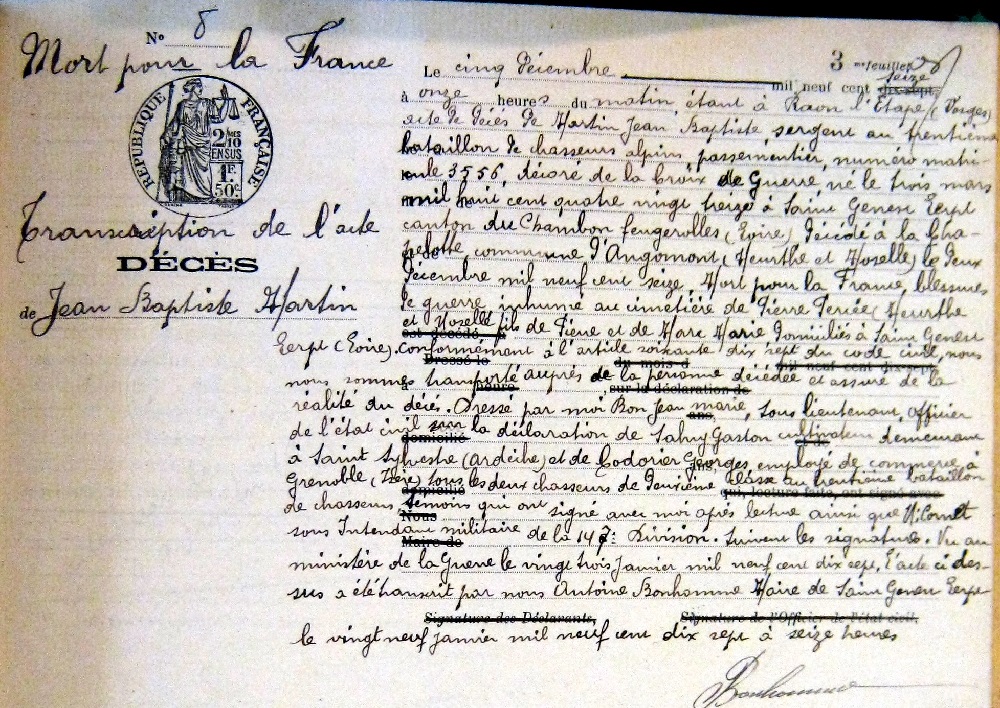 N° 8
Mort pour la France
RÉPUBLIQUE FRANÇAISE
2/10 MES
EN SUS
1F.
50c
Transcription de l'acte
DÉCÈS
de Jean Baptiste Martin
3 me feuillet
Le cinq décembre mil neuf cent dix-sept, seize
à onze heures du matin, étant à Raon l'Étape (Vosges)
acte de décès de Martin Jean Baptiste sergent au trentième
bataillon de chasseurs alpins, passementier, numéro matri-
cule 3556, décoré de la Croix de Guerre, né le trois mars
mil huit cent quatre vingt treize à Saint Genest Lerpt
canton du Chambon feugerolles (Loire) décédé à la Cha-
pelotte, commune d'Angomont (Meurthe et Moselle) le deux
décembre mil neuf cent seize, Mort pour la France, blessures
de guerre inhumé au cimetière de Pierre Percée (Meurthe
et Moselle) fils de Pierre et de Marie domiciliés à Saint Genest
Lerpt (Loire). Conformément à l'article soixante dix sept du code civil, nous
nous sommes transporté auprès de la personne décédée et assuré de la
réalité du décès. Dressé par moi Bon Jean marie, sous lieutenant, officier
de l'état civil sur la déclaration de Gaston cultivateur demeurant
à Saint Sylvestre (Ardèche) et de Codorier Georges, employé de commerce à
Grenoble (Isère) tous les deux chasseurs de deuxième classe au trentième bataillon
de chasseurs témoins qui ont signé avec moi après lecture ainsi que M. Cornet
sous Intendant militaire de la Division. Suivent les signatures. Vu au
ministère de la Guerre le vingt trois janvier mil neuf cent dix sept, l'acte ci des-
sus a été transcrit par nous Antoine Bonhomme Maire de Saint Genest Lerpt
Signature des Déclarants, Signature de l'Officier de l'état civil,
le vingt neuf janvier mil neuf cent dix sept à seize heures
Bonhomme